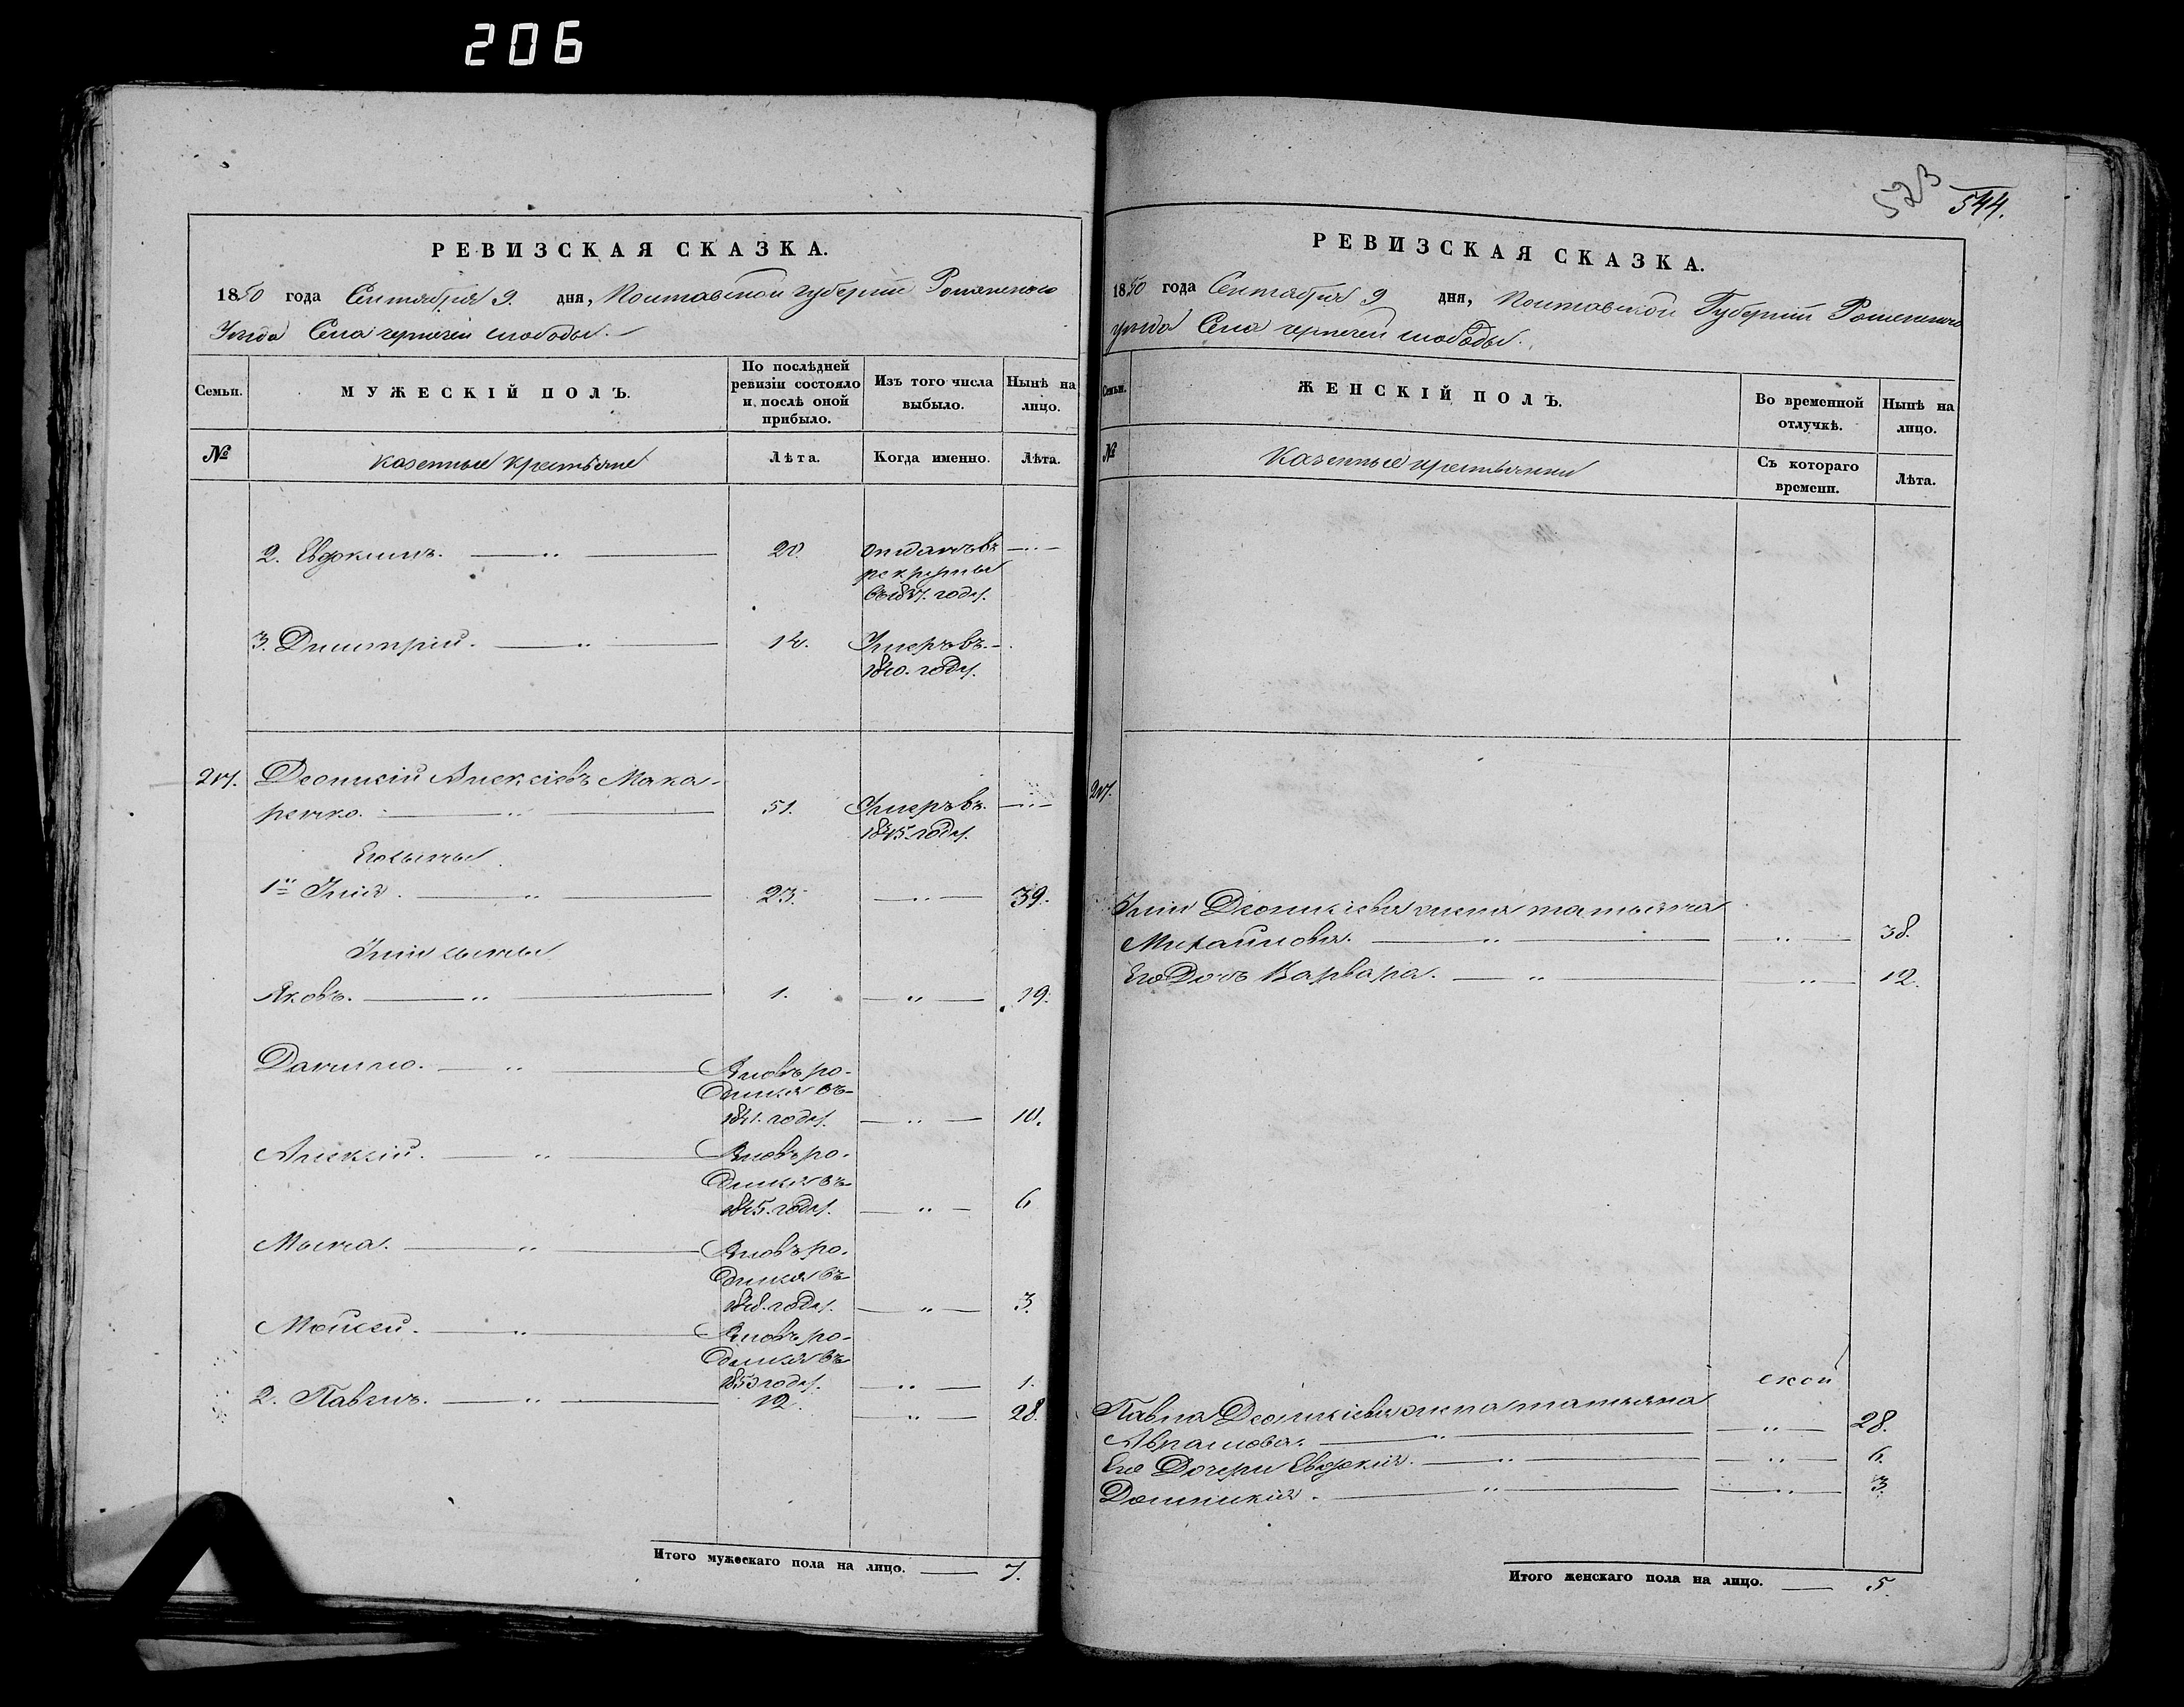 206
РЕВИЗСКАЯ СКАЗКА.
1850 года Сентября 9. дня, Полтавской губерніи Роменского
Уезда Села чернечей слободы.
Семьи.
МУЖЕСКІЙ ПОЛЪ.
По послѣдней ревизіи состояло и послѣ оной прибыло.
Изъ того числа выбыло.
Нынѣ на лицо.
№
Казенные крестьяне
Лѣта.
Когда именно.
Лѣта.
2. Евдокимъ. 20. отданъ въ
рекруты
въ 1837. году.
3. Дмитрій. 12. Умеръ въ
1840. году.
217. Леонтій Алексіевъ Мака-
ренко. 51. Умеръ въ
1845. году.
Его сыны
1й Илія. 23. 39.
Иліи сыны
Яковъ. 1. 19.
Данило. Вновь ро-
дился въ
1841. году. 10.
Алексій. Вновь ро-
дился въ
1845. году. 6
Мына. Вновь ро-
дился въ
1848. году. 3.
Мойсей. Вновь ро-
дился въ
1850 году. 1.
2. Павелъ. 12. 28.
Итого мужескаго пола на лицо. 7.
523 544.
РЕВИЗСКАЯ СКАЗКА.
1850 года Сентября 9 дня, Полтавской Губерніи Роменского
уезда Села чернечей слободы.
Семьи.
ЖЕНСКІЙ ПОЛЪ.
Во временной отлучкѣ.
Нынѣ на лицо.
№
Казенные крестьянки
Съ котораго времени.
Лѣта.
217.
Иліи Леонтіева жена татьяна
Михайлова. 38.
Его Дочь Варвара. 12.
ской
Павла Леонтіева жена татьяна
Аврамова. 28.
Его Дочери Евдокія. 6.
Домникія. 3.
Итого женскаго пола на лицо. 5.